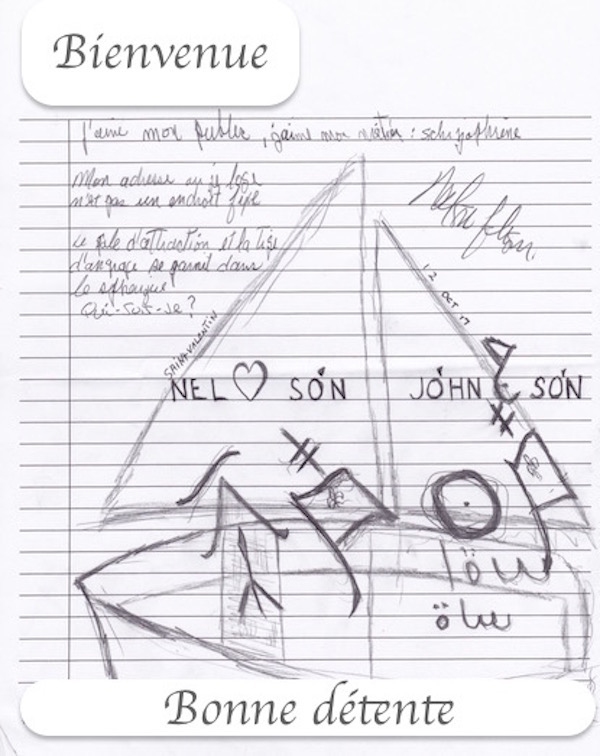 Bienvenue
J'aime mon public, j'aime mon métier : schizophrène
Mon adresse où je loge
n'est pas un endroit fixe
Le pôle d'attraction et la tige
d'ancrage se garnit dans
le
Qui-suis-je ?
12 OCT 17
SAINT-VALENTIN
NEL SON JOHN & SON
Bonne détente